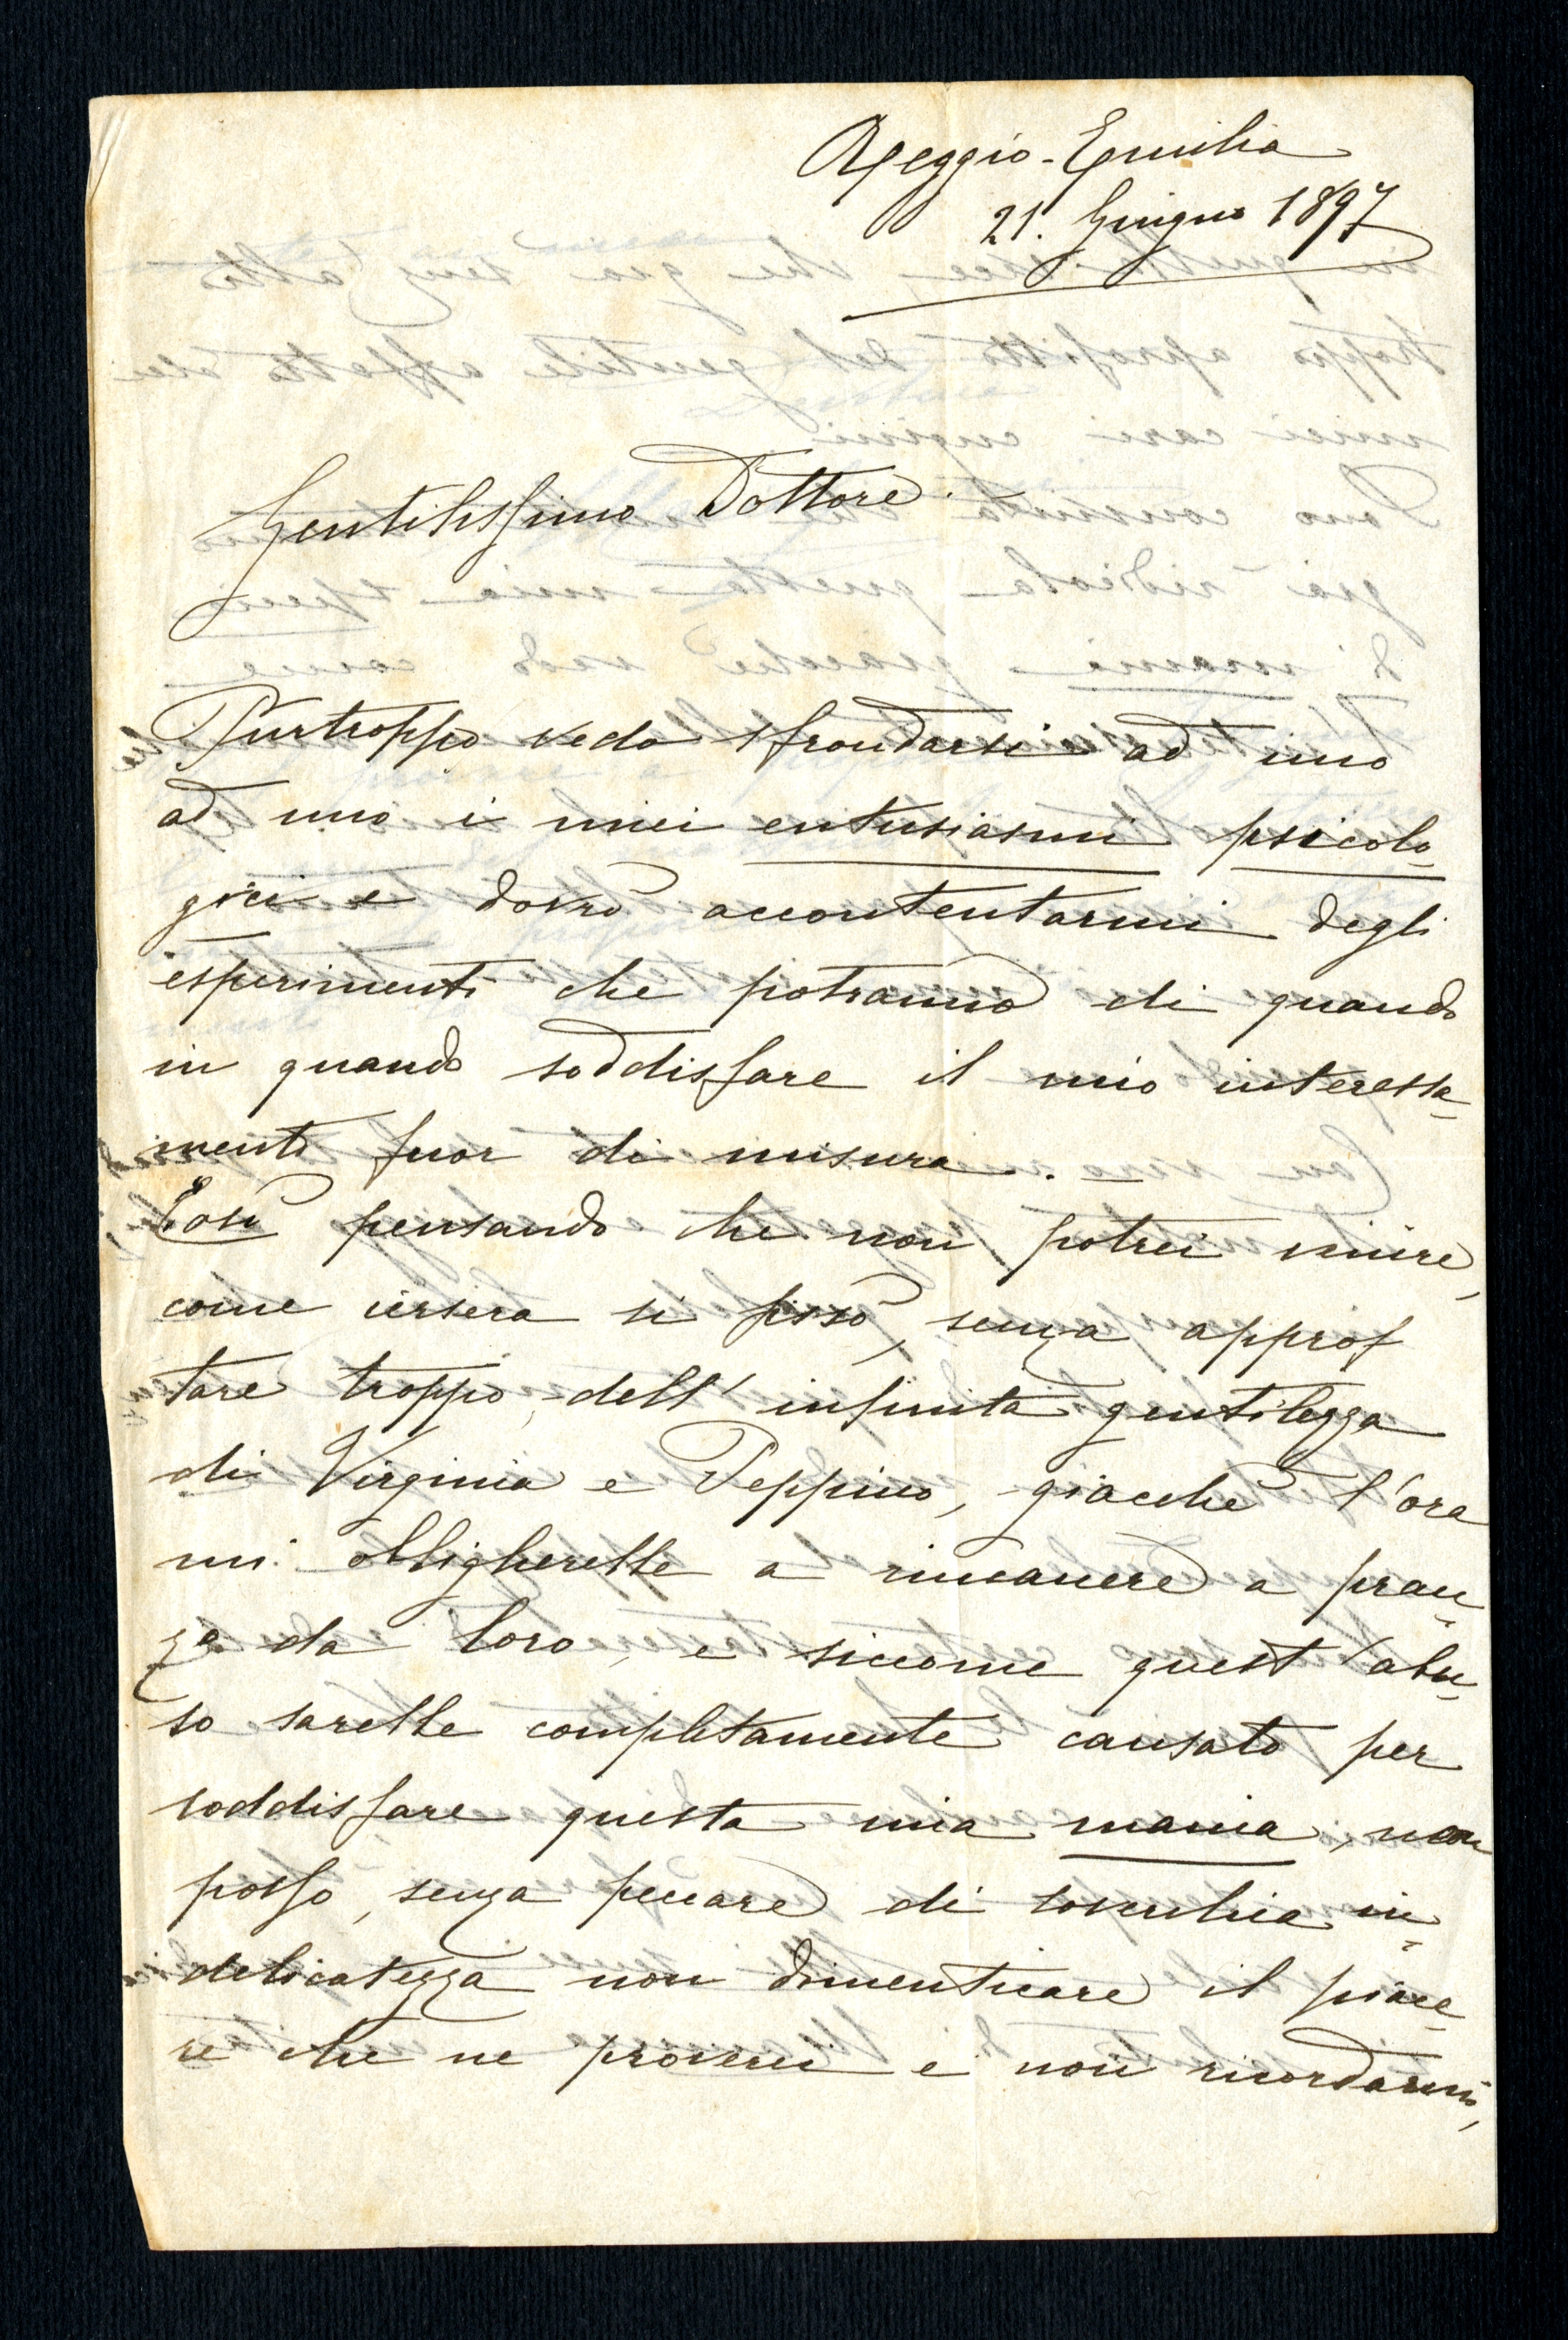 Reggio-Emilia
21. Giugno 1897
Gentilissimo Dottore.
Purtroppo vedo sfrondarsi ad uno
ad uno i miei entusiasmi psicolo-
gici e dovrò accontentarmi degli
esperimenti che potranno di quando
in quando soddisfare il mio interessa-
mento fuor di misura. —
Così pensando che non potrei venire,
come iersera si fissò, senza approf
tare troppo dell' infinita gentilezza
di Virginia e Peppino, giacchè l'ora
mi obbligherebbe a rimanere a pran-
zo da loro, e siccome quest'abu-
so sarebbe completamente causato per
soddisfare questa mia mania, non
posso, senza peccare di soverchia in-
delicatezza non dimenticare il piace-
re che ne proverei e non ricordarmi,